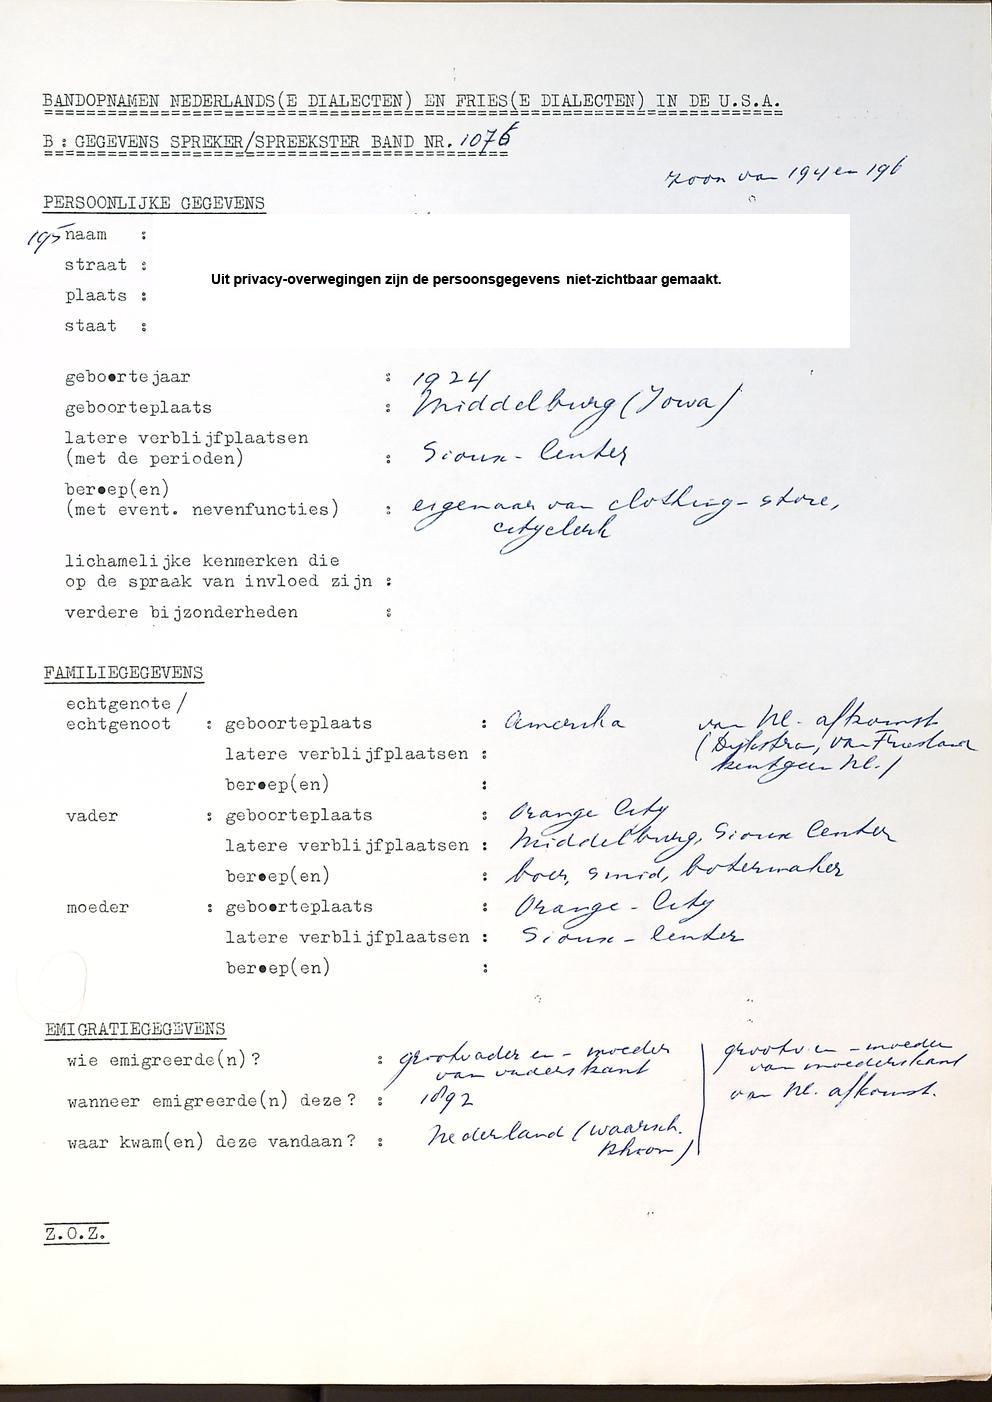 BANDOPNAMEN NEDERLANDS(E DIALECTEN) EN FRIES(E DIALECTEN) IN DE U.S.A.
B: GEGEVENS SPREKER/SPREEKSTER BAND NR. 1076
zoon van 194 en 196
PERSOONLIJKE GEGEVENS
195 naam :
straat :
Uit privacy-overwegingen zijn de persoonsgegevens niet-zichtbaar gemaakt.
plaats :
staat :
geboortejaar : 1924
geboorteplaats : Middelburg (Iowa)
latere verblijfplaatsen
(met de perioden) : Sioux-Center
beroep(en)
(met event. nevenfuncties) : eigenaar van clothing-store,
cityclerk
lichamelijke kenmerken die
op de spraak van invloed zijn :
verdere bijzonderheden :
FAMILIEGEGEVENS
echtgenote/
echtgenoot : geboorteplaats : Amerika van Nl. afkomst
(Dijkstra, van Friesland
latere verblijfplaatsen :
kent geen Nl.)
beroep(en) :
vader : geboorteplaats : Orange City
latere verblijfplaatsen : Middelburg, Sioux Center
beroep(en) : boer, smid, botermaker
moeder : geboorteplaats : Orange-City
latere verblijfplaatsen : Sioux-Center
beroep(en) :
EMIGRATIEGEGEVENS
wie emigreerde(n)? : grootvader en -moeder grootv. en -moeder
van vaderskant van moederskant
wanneer emigreerde(n) deze? : 1892 van Nl. afkomst.
waar kwam(en) deze vandaan? : Nederland (waarsch.
Rhoon)
Z.O.Z.